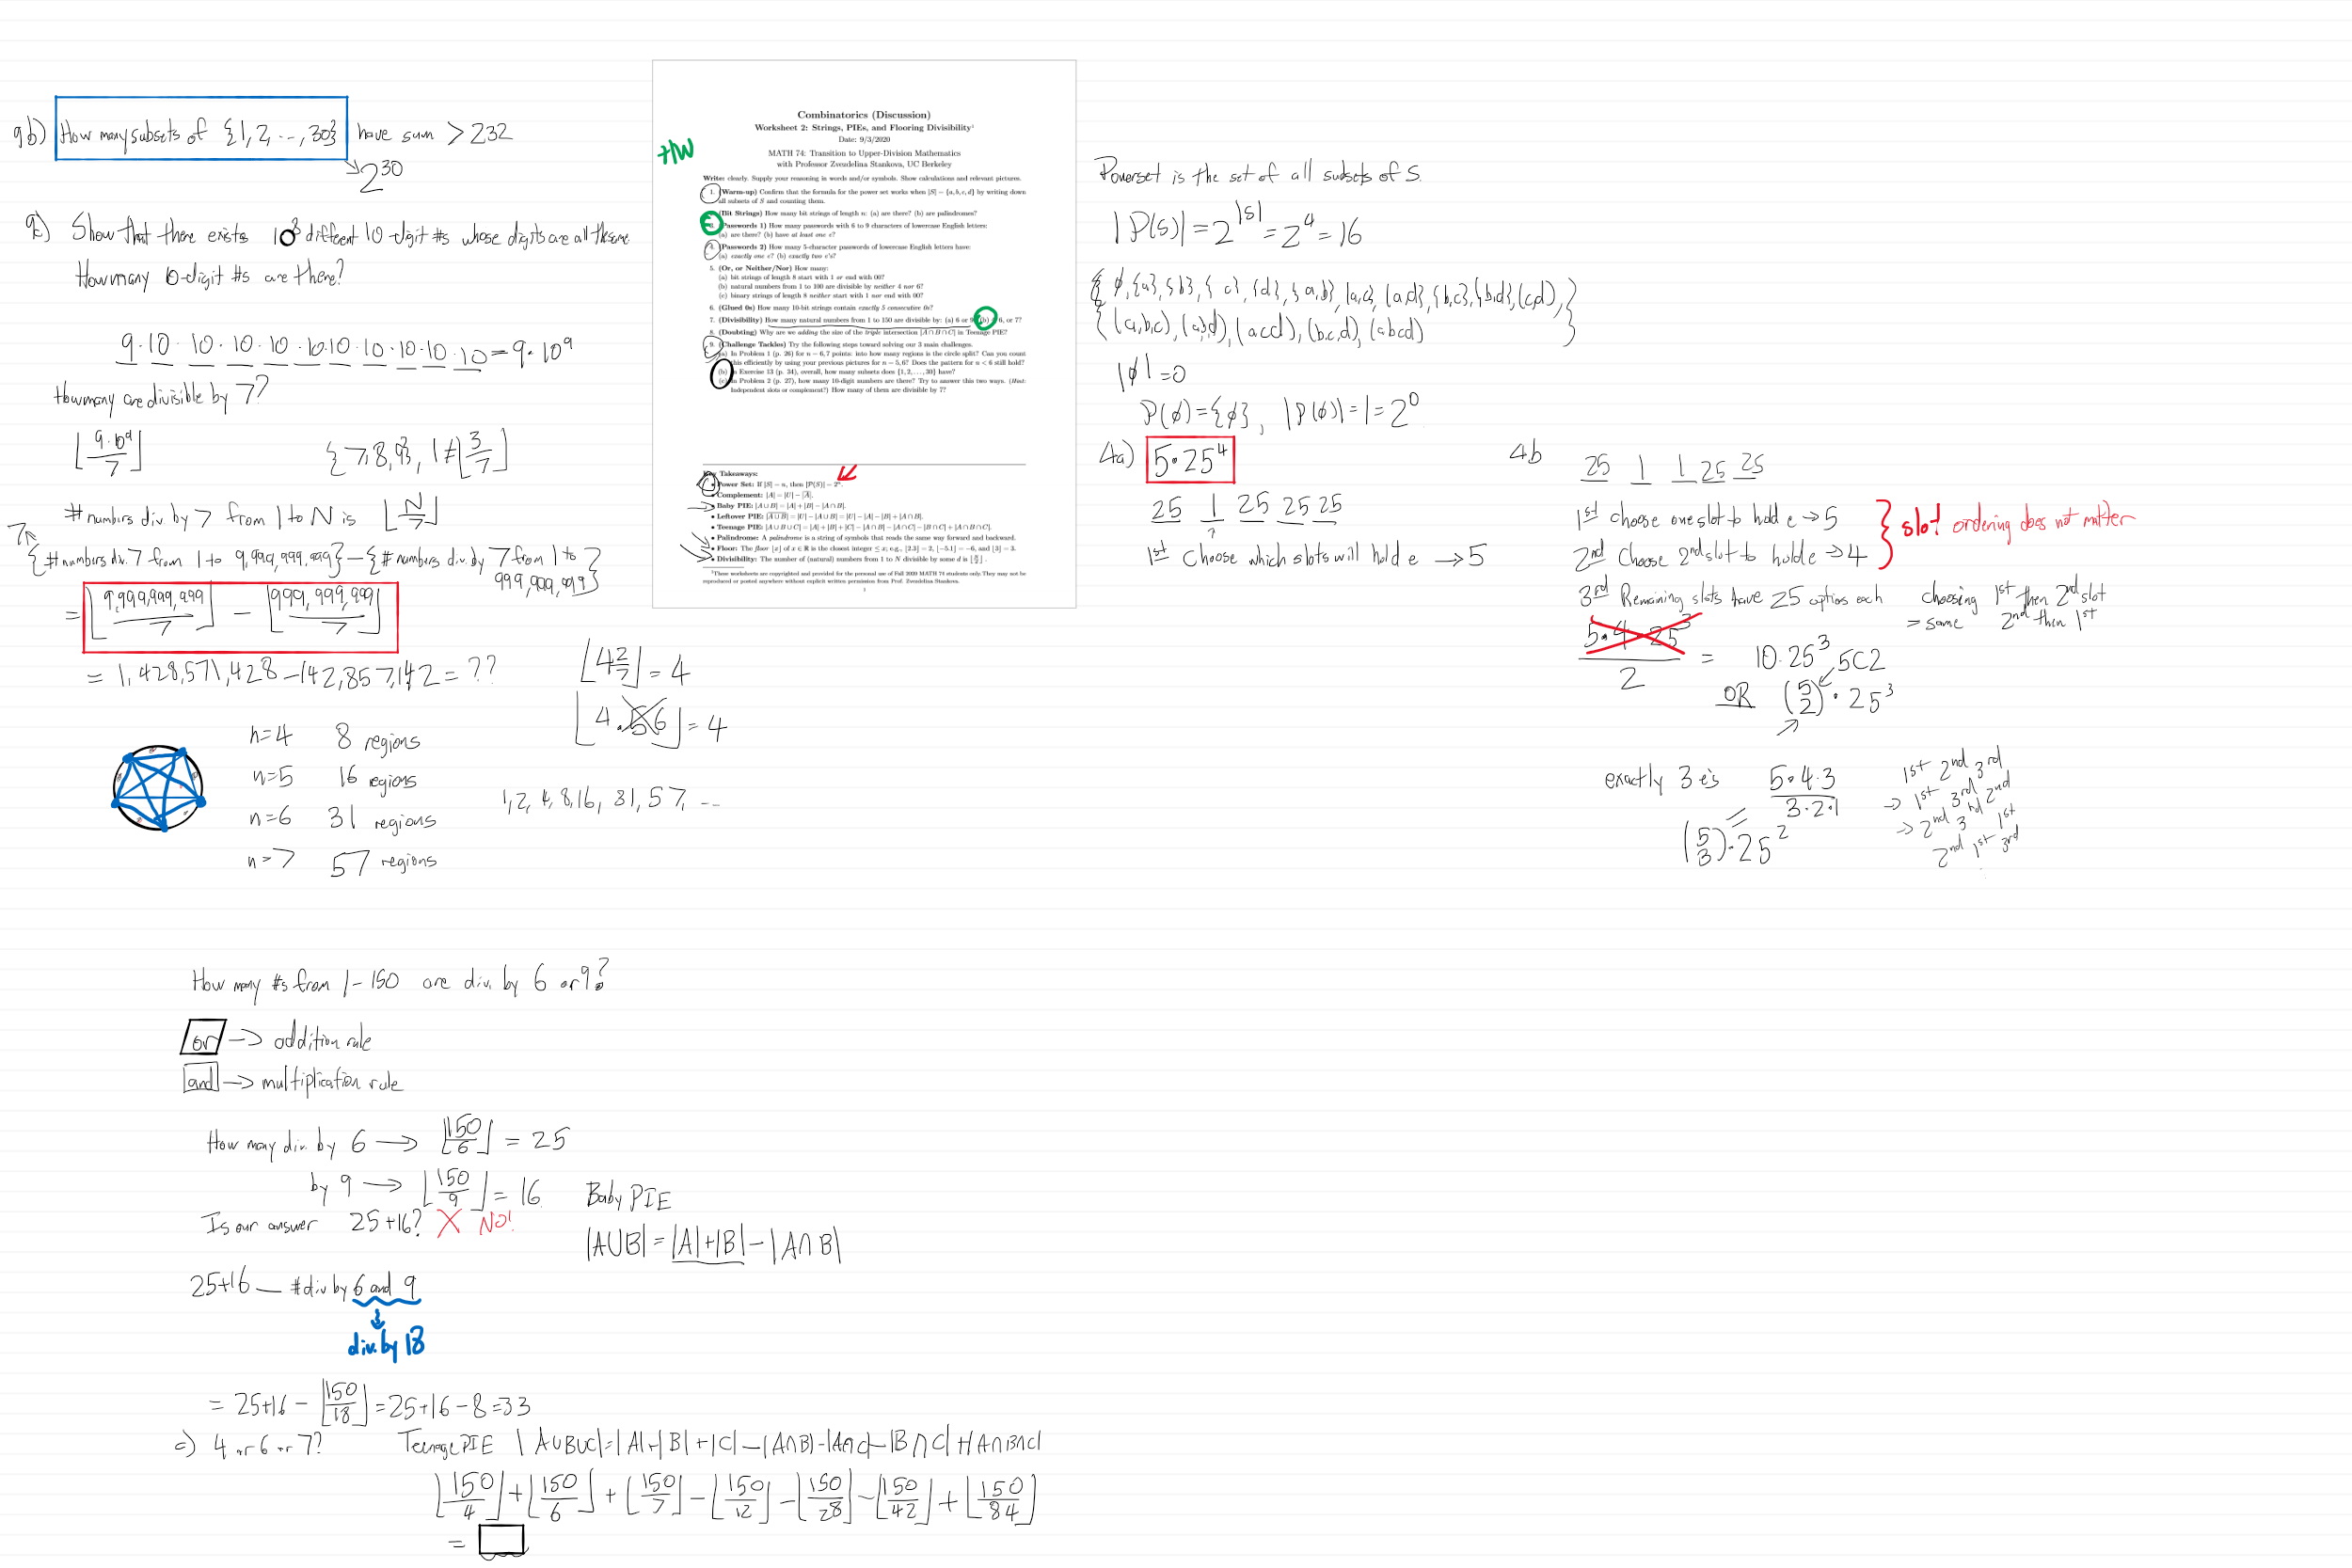 9b) How many subsets of {1, 2, ..., 30} have sum > 232
2^30
9c) Show that there exists 10^3 different 10-digit #s whose digits are all the same
How many 10-digit #s are there?
9·10·10·10·10·10·10·10·10·10·10 = 9·10^9
How many are divisible by 7?
⌊9·10^9/7⌋ {7,8,9}, 1≠⌊3/7⌋
# numbers div. by 7 from 1 to N is ⌊N/7⌋
{# numbers div. 7 from 1 to 9,999,999,999} – {# numbers div. by 7 from 1 to 999,999,999}
= ⌊9,999,999,999/7⌋ – ⌊999,999,999/7⌋
= 1,428,571,428 – 142,857,142 = ??
⌊4 2/7⌋ = 4
⌊4.56⌋ = 4
n=4 8 regions
n=5 16 regions
n=6 31 regions
n=7 57 regions
1, 2, 4, 8, 16, 31, 57, ...
HW
Combinatorics (Discussion)
Worksheet 2: Strings, PIEs, and Flooring Divisibility¹
Date: 9/3/2020
MATH 74: Transition to Upper-Division Mathematics
with Professor Zvezdelina Stankova, UC Berkeley
Write: clearly. Supply your reasoning in words and/or symbols. Show calculations and relevant pictures.
1. (Warm-up) Confirm that the formula for the power set works when |S| = {a, b, c, d} by writing down
all subsets of S and counting them.
(Bit Strings) How many bit strings of length n: (a) are there? (b) are palindromes?
(Passwords 1) How many passwords with 6 to 9 characters of lowercase English letters:
(a) are there? (b) have at least one e?
4. (Passwords 2) How many 5-character passwords of lowercase English letters have:
(a) exactly one e? (b) exactly two e's?
5. (Or, or Neither/Nor) How many:
(a) bit strings of length 8 start with 1 or end with 00?
(b) natural numbers from 1 to 100 are divisible by neither 4 nor 6?
(c) binary strings of length 8 neither start with 1 nor end with 00?
6. (Glued 0s) How many 10-bit strings contain exactly 5 consecutive 0s?
7. (Divisibility) How many natural numbers from 1 to 150 are divisible by: (a) 6 or 9? (b) 4, 6, or 7?
8. (Doubting) Why are we adding the size of the triple intersection |A∩B∩C| in Teenage PIE?
9. (Challenge Tackles) Try the following steps toward solving our 3 main challenges.
(a) In Problem 1 (p. 26) for n = 6, 7 points: into how many regions is the circle split? Can you count
this efficiently by using your previous pictures for n = 5, 6? Does the pattern for n < 6 still hold?
(b) In Exercise 13 (p. 34), overall, how many subsets does {1, 2, . . . , 30} have?
(c) In Problem 2 (p. 27), how many 10-digit numbers are there? Try to answer this two ways. (Hint:
Independent slots or complement?) How many of them are divisible by 7?
Key Takeaways:
• Power Set: If |S| = n, then |P(S)| = 2ⁿ.
• Complement: |A| = |U| − |Ā|.
• Baby PIE: |A ∪ B| = |A| + |B| − |A ∩ B|.
• Leftover PIE: |A ∪ B| = |U| − |A ∪ B| = |U| − |A| − |B| + |A ∩ B|.
• Teenage PIE: |A ∪ B ∪ C| = |A| + |B| + |C| − |A ∩ B| − |A ∩ C| − |B ∩ C| + |A ∩ B ∩ C|.
• Palindrome: A palindrome is a string of symbols that reads the same way forward and backward.
• Floor: The floor ⌊x⌋ of x ∈ R is the closest integer ≤ x; e.g., ⌊2.3⌋ = 2, ⌊−5.1⌋ = −6, and ⌊3⌋ = 3.
• Divisibility: The number of (natural) numbers from 1 to N divisible by some d is ⌊N/d⌋.
¹These worksheets are copyrighted and provided for the personal use of Fall 2020 MATH 74 students only. They may not be
reproduced or posted anywhere without explicit written permission from Prof. Zvezdelina Stankova.
Powerset is the set of all subsets of S.
|P(S)| = 2^|S| = 2^4 = 16
{∅, {a}, {b}, {c}, {d}, {a,b}, {a,c}, {a,d}, {b,c}, {b,d}, (c,d),
(a,b,c), (a,b,d), (acd), (b,c,d), (abcd)}
|∅| = 0
P(∅) = {∅}, |P(∅)| = 1 = 2^0
4a) 5·25^4
25 1 25 25 25
?
1st Choose which slots will hold e → 5
4b
25 1 1 25 25
1st choose one slot to hold e → 5
2nd Choose 2nd slot to hold e → 4
slot ordering does not matter
3rd Remaining slots have 25 options each
choosing 1st then 2nd slot
= same 2nd then 1st
5·4·25^3/2 = 10·25^3 5C2
OR (5 2)·25^3
exactly 3 e's 5·4·3/3·2·1
= (5 3)·25^2
1st 2nd 3rd
→ 1st 3rd 2nd
→ 2nd 3rd 1st
2nd 1st 3rd
How many #s from 1–150 are div. by 6 or 9?
or → addition rule
and → multiplication rule
How many div. by 6 → ⌊150/6⌋ = 25
by 9 → ⌊150/9⌋ = 16
Is our answer 25+16? X NO!
Baby PIE
|A∪B| = |A|+|B| – |A∩B|
25+16 – # div by 6 and 9
div. by 18
= 25+16 – ⌊150/18⌋ = 25+16–8 = 33
c) 4 or 6 or 7? Teenage PIE |A∪B∪C| = |A|+|B|+|C| – |A∩B| – |A∩C| – |B∩C| + |A∩B∩C|
⌊150/4⌋ + ⌊150/6⌋ + ⌊150/7⌋ – ⌊150/12⌋ – ⌊150/28⌋ – ⌊150/42⌋ + ⌊150/84⌋
=